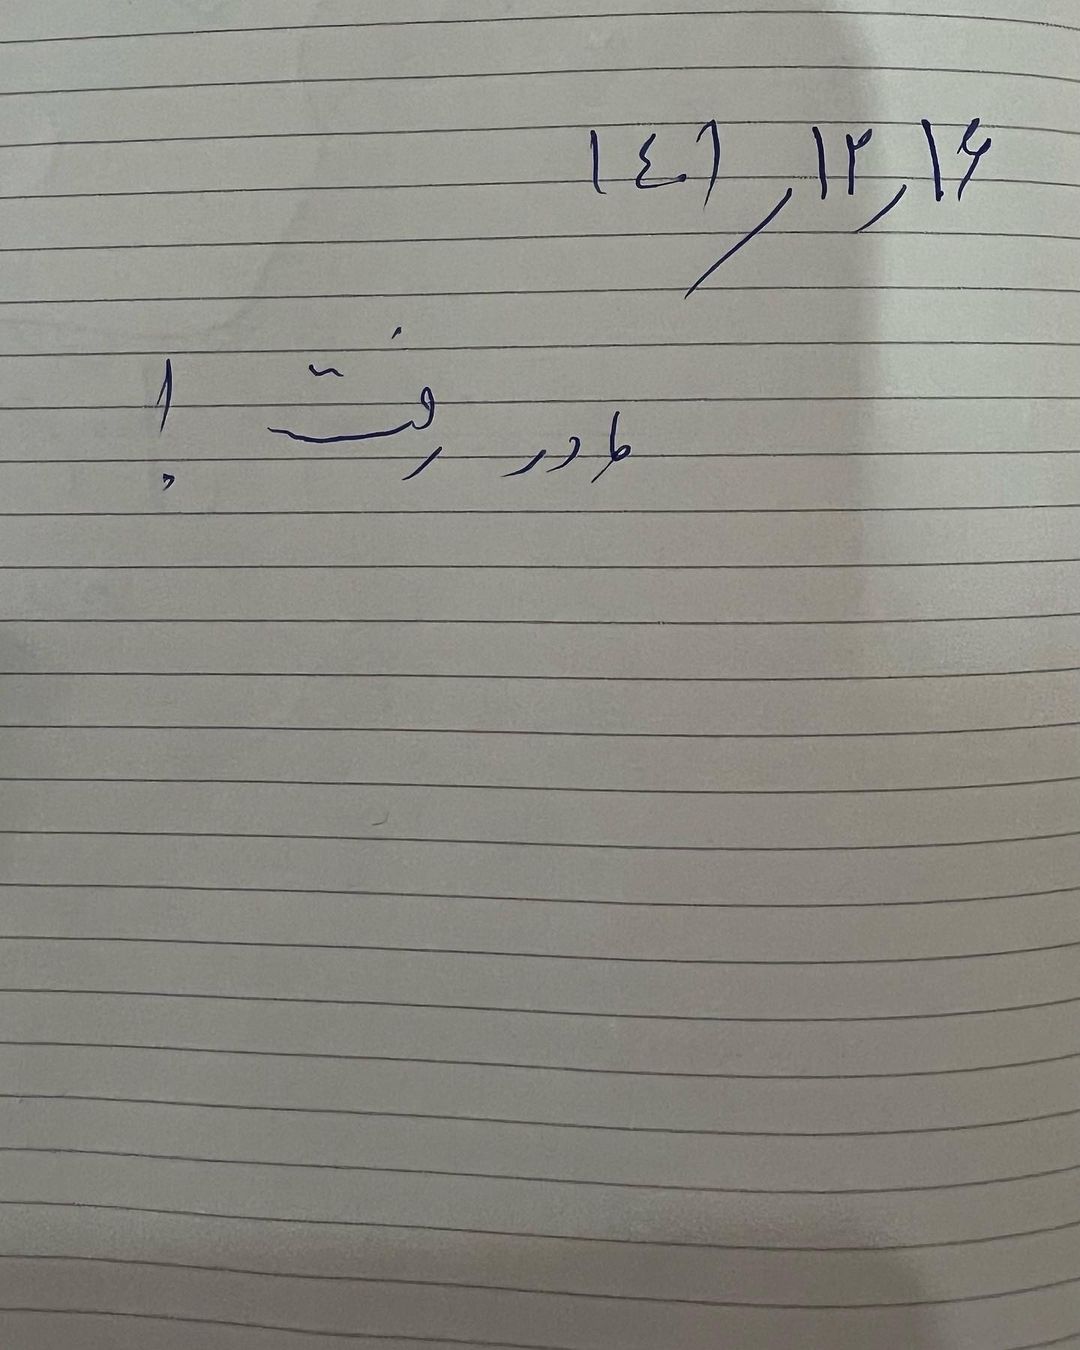 ۱٤۱ / ۱۲ / ۱۶
مادر رفت !